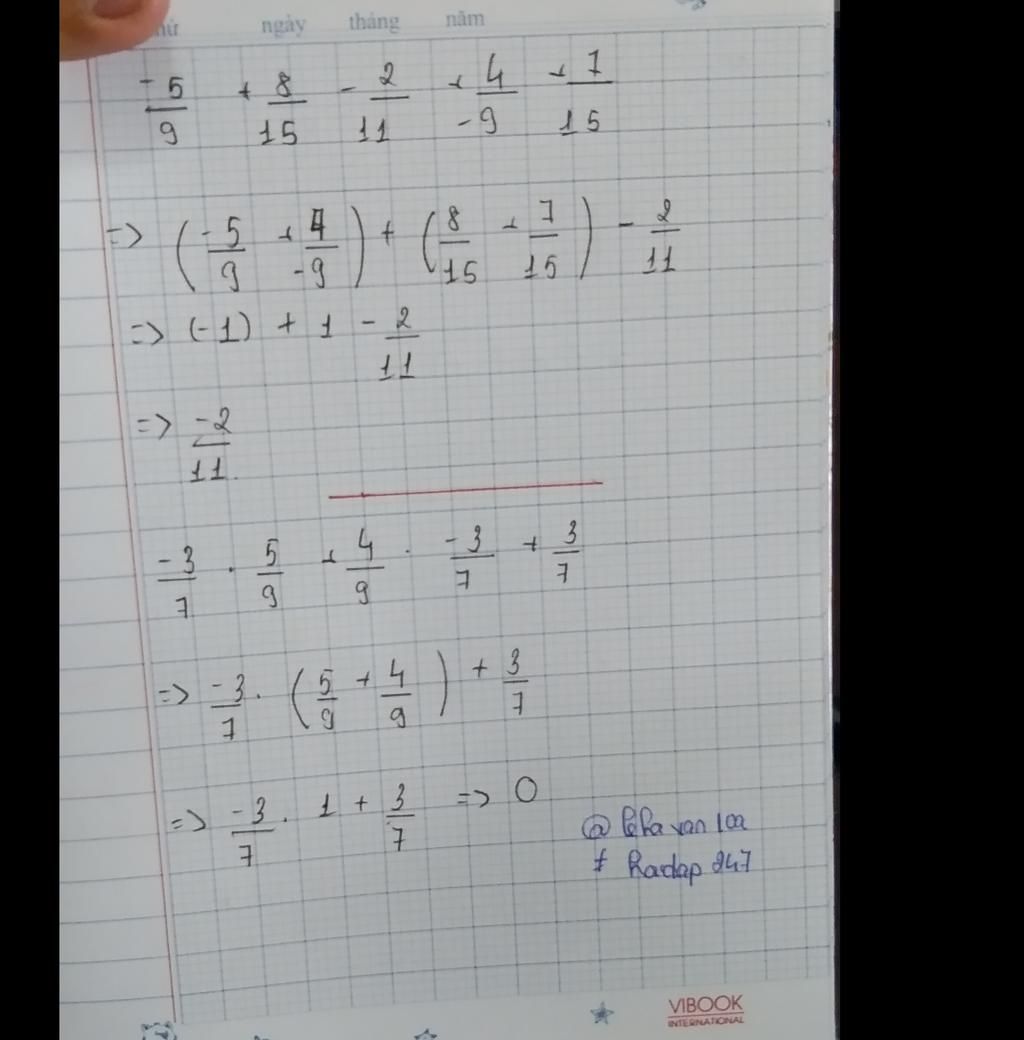 ngày tháng năm
-5/9 + 8/15 - 2/11 + 4/-9 + 7/15
=> (-5/9 + 4/-9) + (8/15 + 7/15) - 2/11
=> (-1) + 1 - 2/11
=> -2/11.
-3/7 . 5/9 + 4/9 . -3/7 + 3/7
=> -3/7 . (5/9 + 4/9) + 3/7
=> -3/7 . 1 + 3/7 => 0
@ van loa
247
VIBOOK
INTERNATIONAL